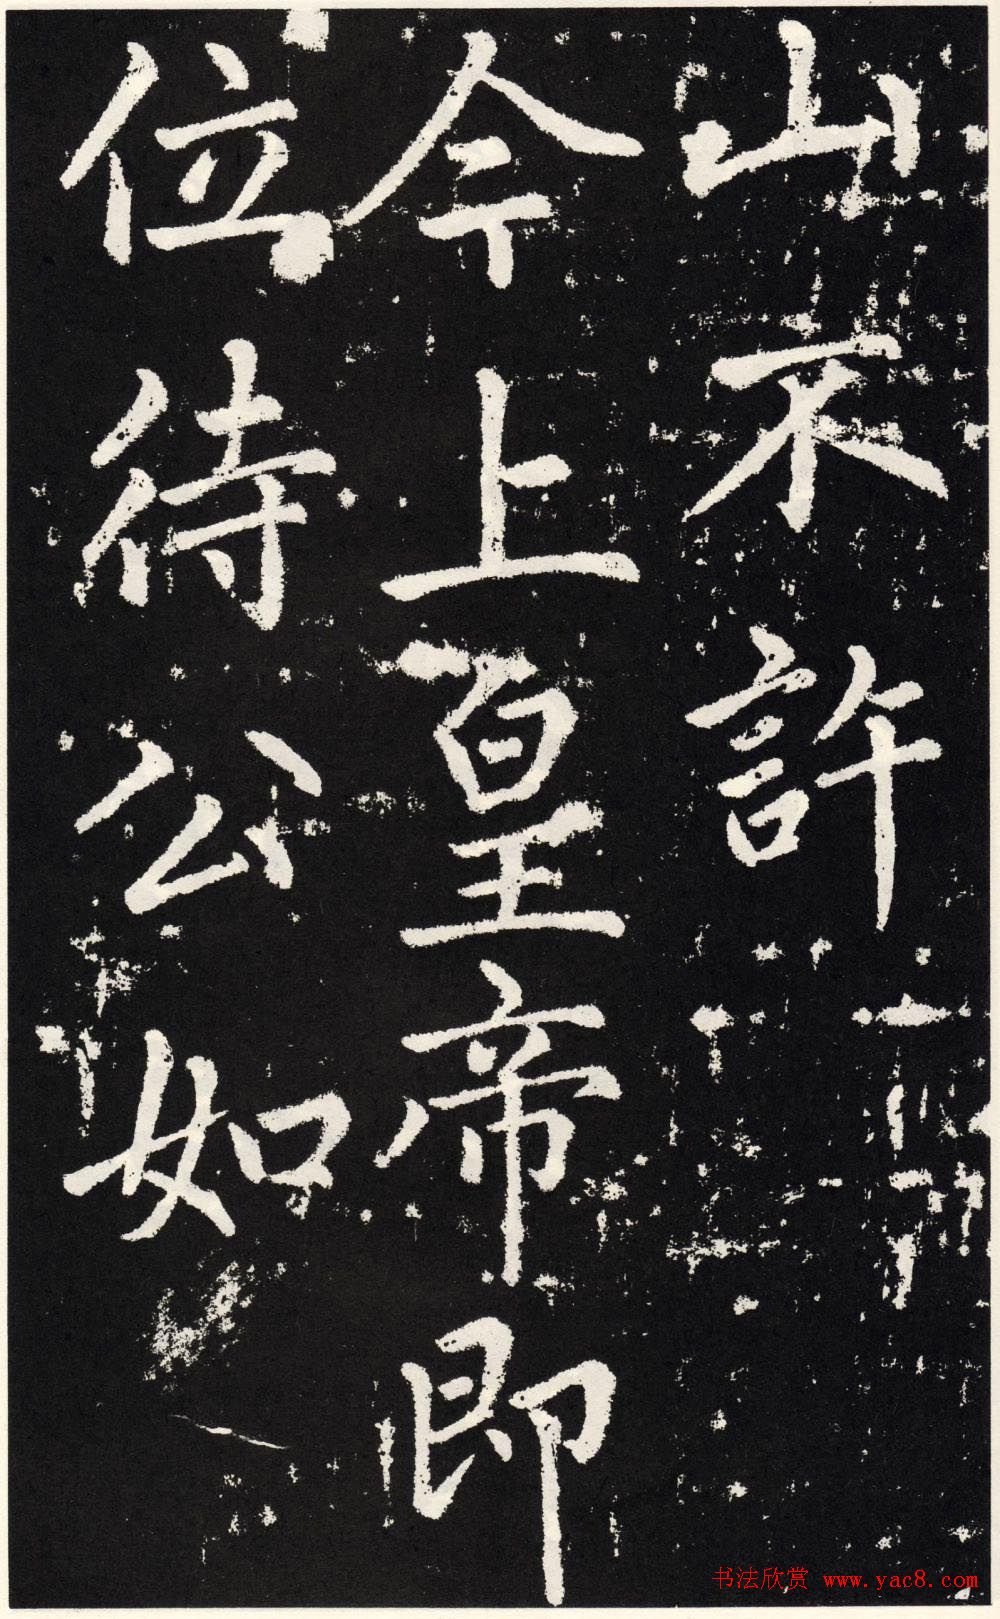 山不許
今上皇帝即
位待公如
书法欣赏 www.yac8.com